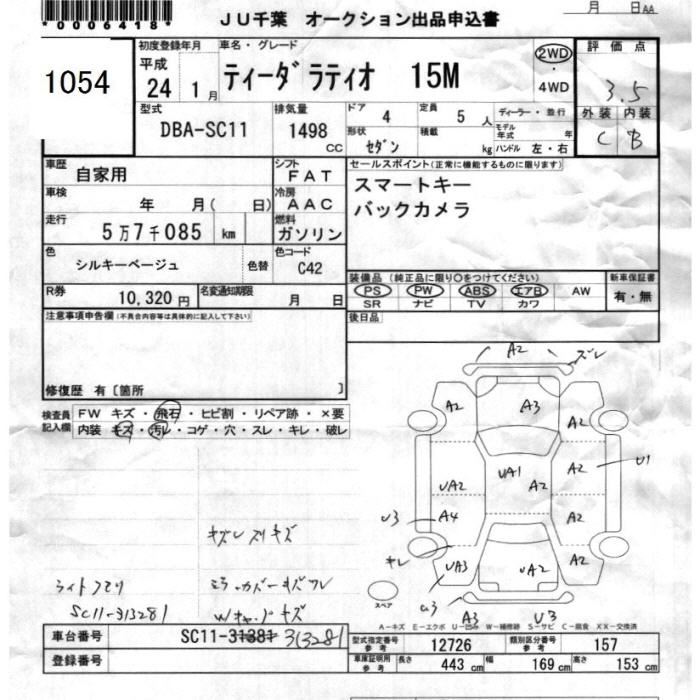 *0006418*
JU千葉 オークション出品申込書
月 日AA
1054
初度登録年月 車名・グレード
平成
24 1月
ティーダ ラティオ 15M
2WD
4WD
評価点
3.5
外装 内装
C B
型式 排気量 ドア 4 定員 5人 ディーラー・並行
DBA-SC11 1498 CC
形状 セダン 積載 kg モデル年式 年 ハンドル 左・右
車歴 自家用
シフト FAT
車検 年 月( 日)
冷房 AAC
走行 5万7千085 km
燃料 ガソリン
色 シルキーベージュ 色替
色コード C42
R券 10,320円 名変通知期限 月 日
セールスポイント(正常に機能するものに限ります)
スマートキー
バックカメラ
装備品(純正品に限り○をつけてください) 新車保証書
PS PW ABS エアB AW 有・無
SR ナビ TV カワ
後日品
注意事項申告欄(不具合内容等は具体的に記入して下さい)
修復歴 有〔箇所 〕
検査員記入欄
FW キズ・飛石・ヒビ割・リペア跡・×要
内装 キズ・汚レ・コゲ・穴・スレ・キレ・破レ
A2 ズレ
A2 A3 A2
UA2 UA1 A2 A2 U1
U3 A4 A2
キレ UA3 UA2 A2
U3 A3 U3
スペア
ライトクモリ
SC11-313281
A-キズ E-エクボ U-凹み W-補修跡 S-サビ C-腐食 XX-交換済
車台番号 SC11-313281
登録番号
型式指定番号 参考 12726 類別区分番号 参考 157
車庫証明用 参考 長さ 443 cm 幅 169 cm 高さ 153 cm